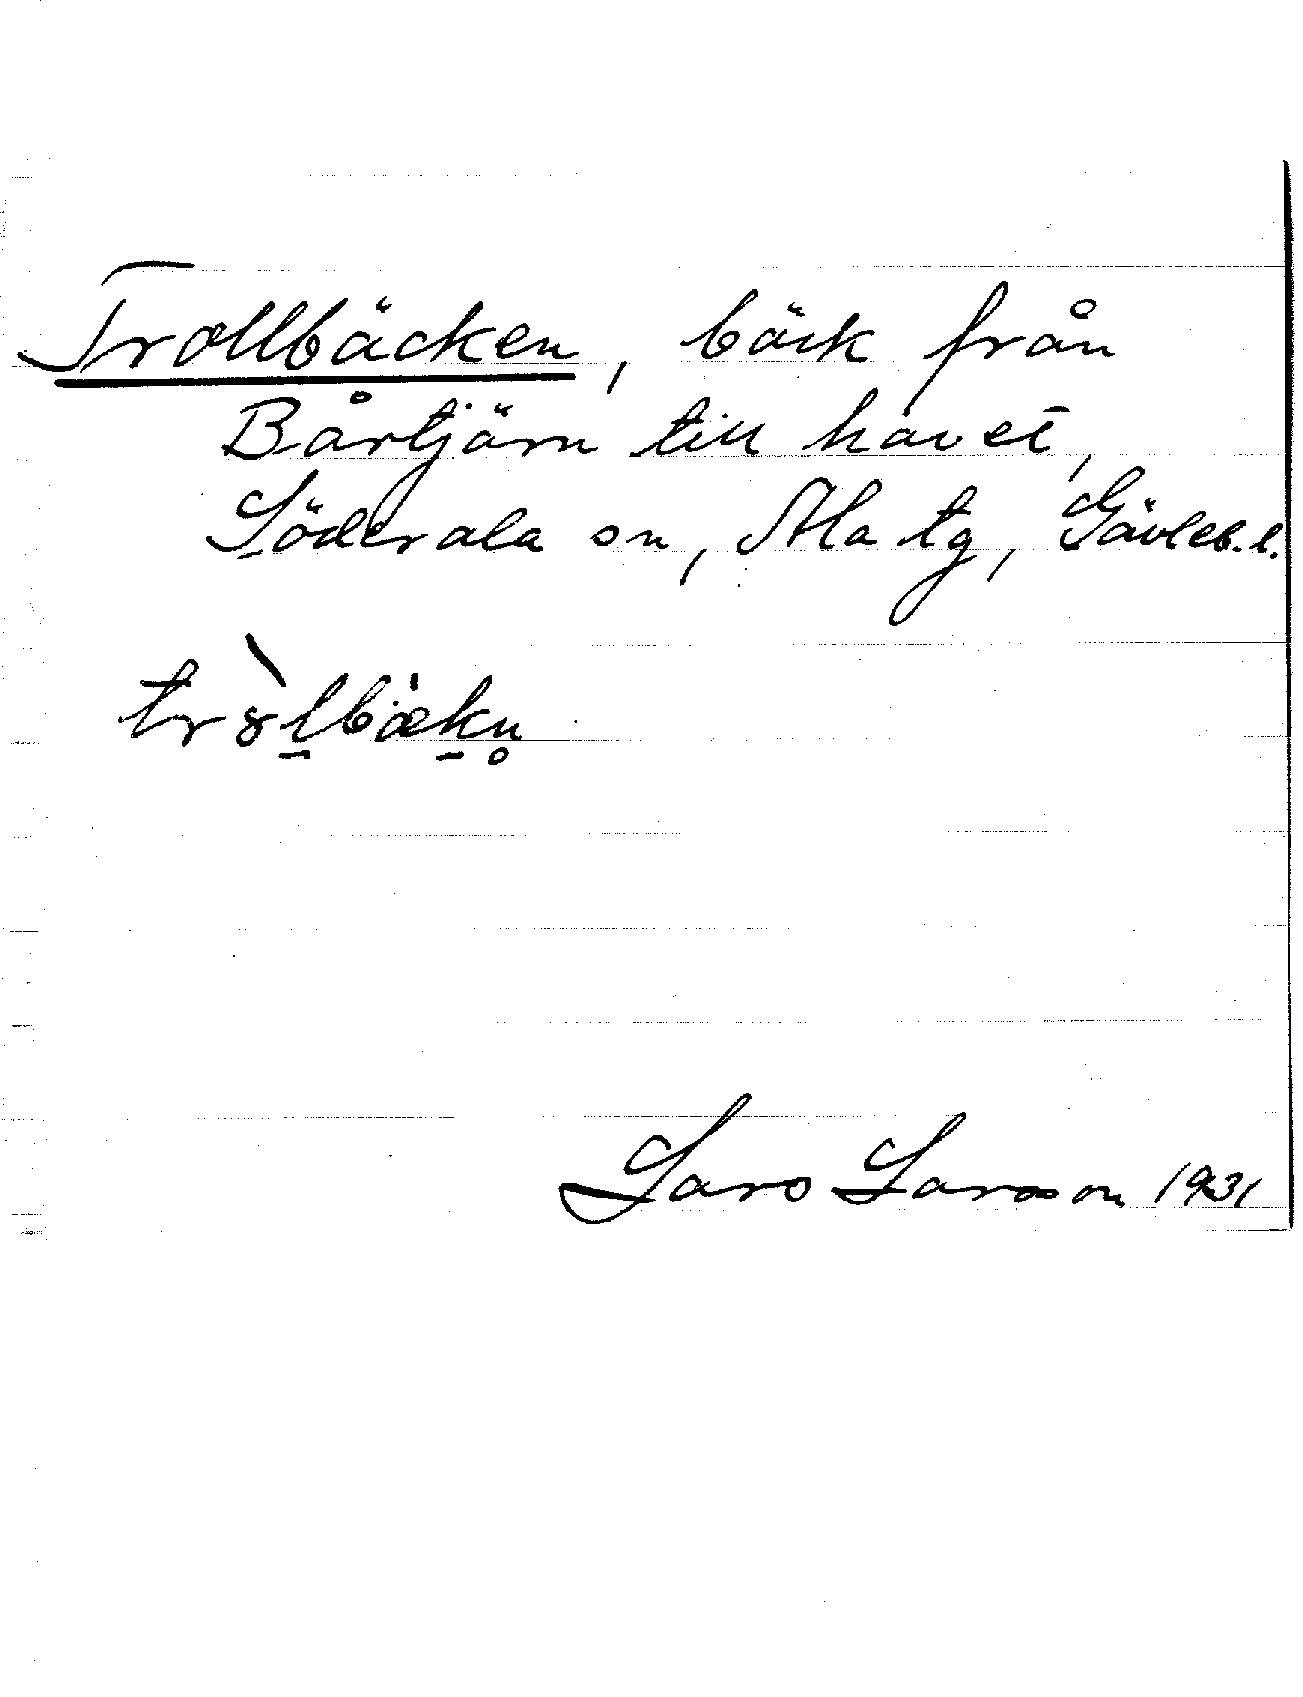 Trollbäcken, bäck från
Bårtjärn till havet,
Söderala sn, Ala tg, Gävleb.l.
tr8̀l̠bæk̠n̥
Lars Larsson 1931